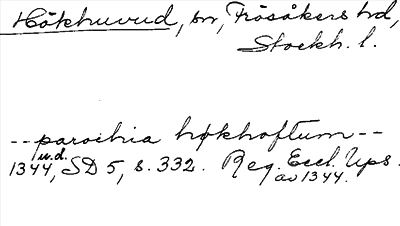 Hökhuvud, sn, Frösåkers hd,
Stockh. l.
--parochia høkhoftum--
u.d.
1344, SD 5, s. 332. Reg. Eccl. Ups.
av 1344.